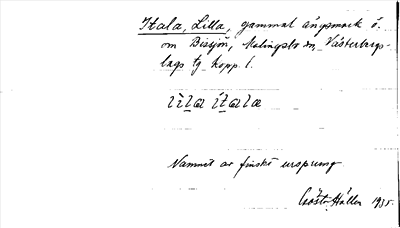 Itala, Lilla, gammal ängsmark ö.
om Bissjön, Malingsbo sn, Västerbergs-
lags tg Kopp. l.
Namnet av finskt ursprung.
Gösta Hallen 1935.